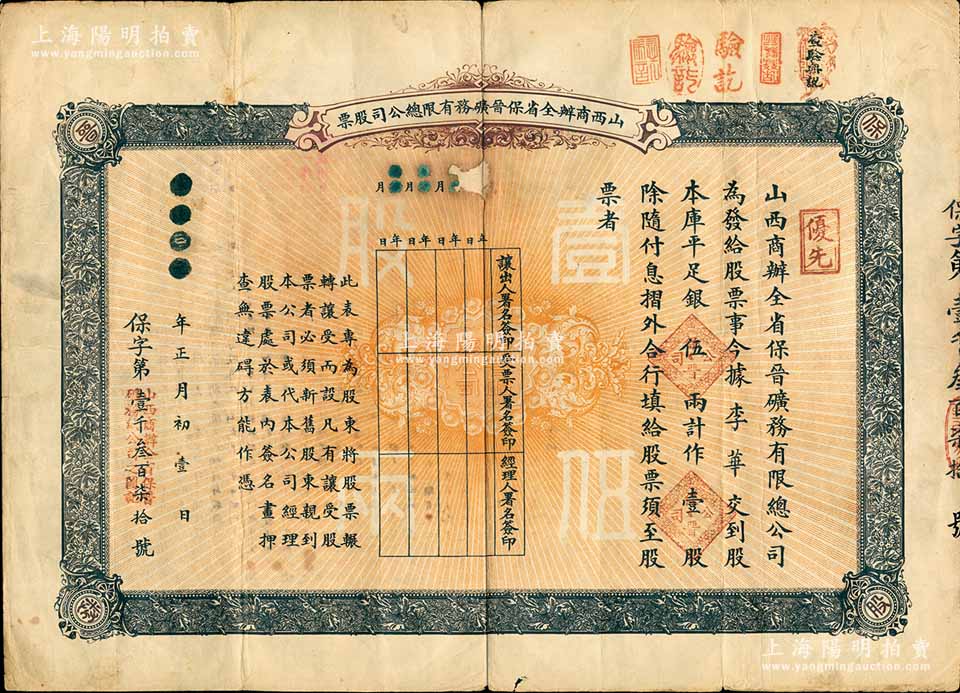 上海陽明拍賣
www.yangmingauction.com
上海陽明拍賣
www.yangmingauction.com
驗訖
查驗無訛
山西商辦全省保晉礦務有限總公司股票
保
晉
股
優先
山西商辦全省保晉礦務有限總公司
為發給股票事今據李華交到股
本庫平足銀伍兩計作壹股
除隨付息摺外合行填給股票須至股
票者
壹
股
月
月
月
年 日
年 日
年 日
年 日
讓出人署名簽印
受票人署名簽印
經理人署名簽印
此表專為股東將股票輾
轉讓受而設凡有讓受股
票者必須新舊股東親到
本公司或代本公司經理
股票處於表內簽名畫押
查無違碍方能作憑
年正月初壹日
保字第壹千叁百柒拾號
上海陽明拍賣
www.yangmingauction.com
上海陽明拍賣
www.yangmingauction.com